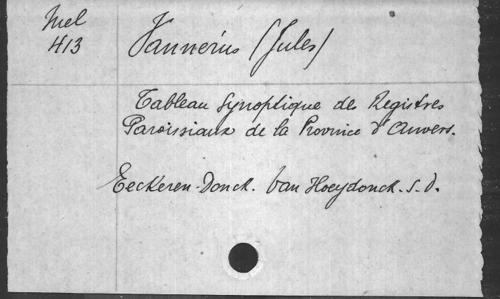 Mel
413
Vannérus (Jules)
Tableau Synoptique des Registres
Paroissiaux de la Province d'Anvers.
Eeckeren-Donck. Van Hoeydonck. s.d.